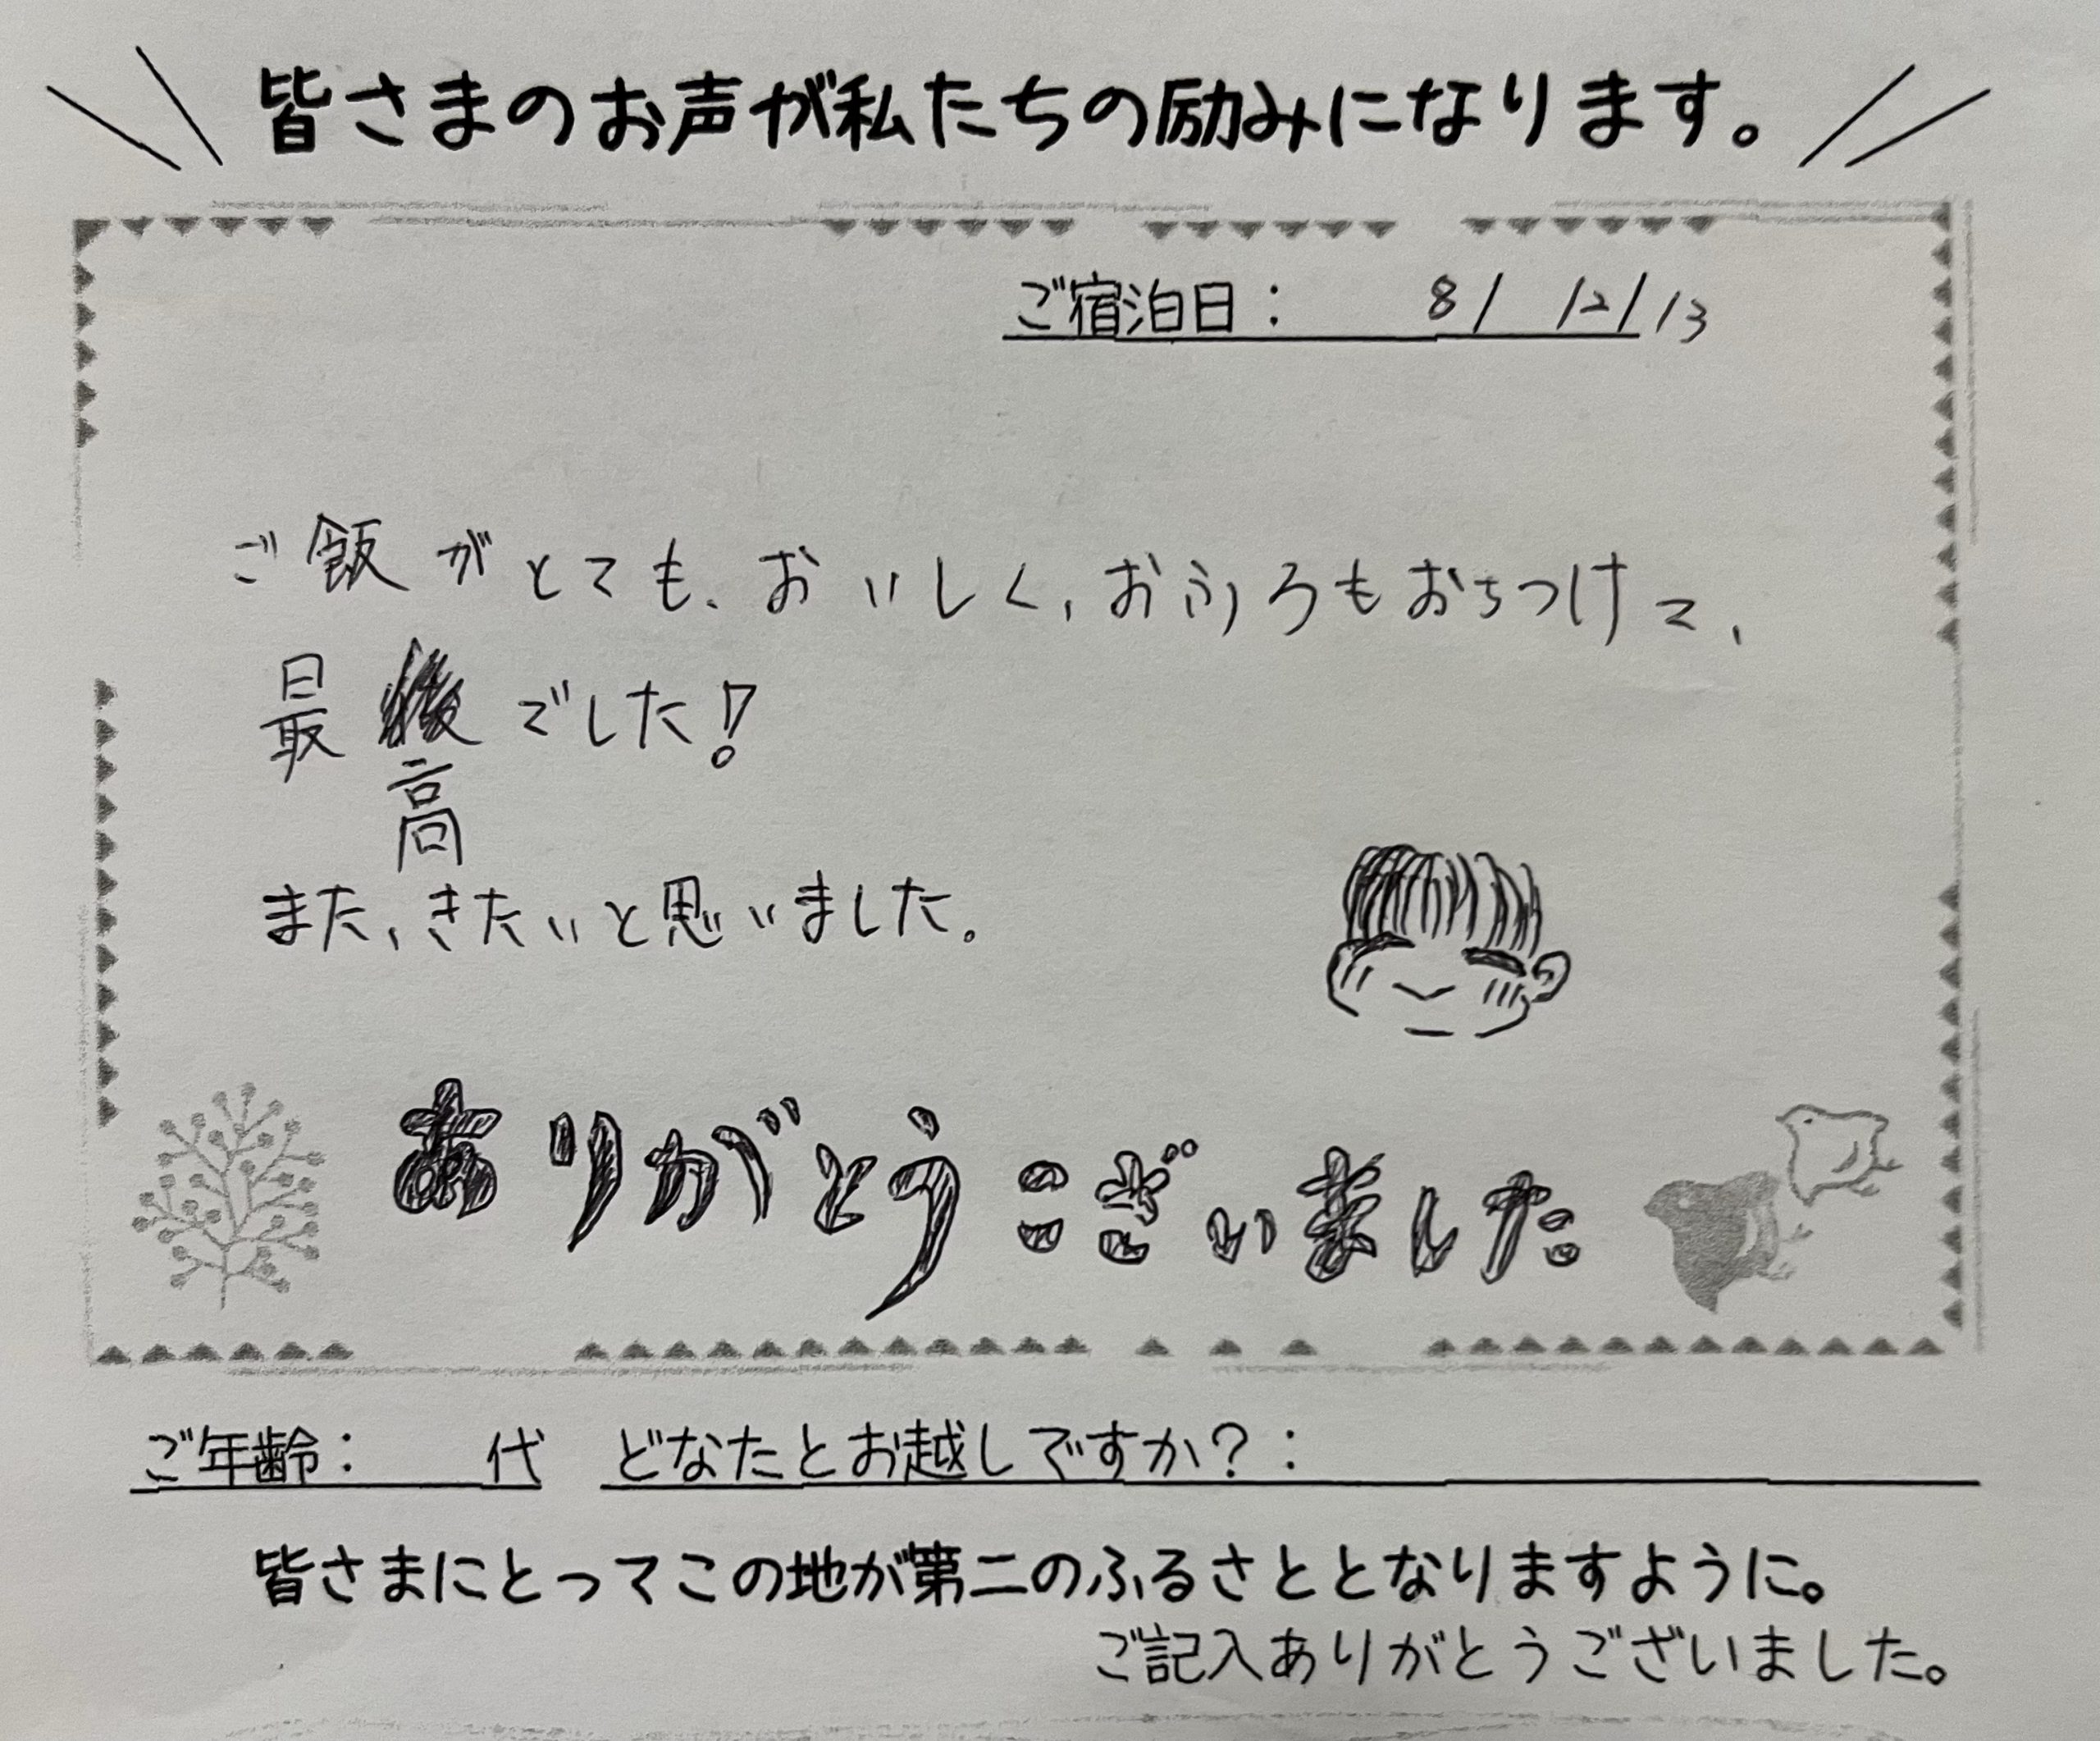 皆さまのお声が私たちの励みになります。
ご宿泊日： 8/ 12/13
ご飯がとても、おいしく、おふろもおちつけて、
最高でした！
また、きたいと思いました。
ありがとうこざいました
ご年齢： 代 どなたとお越しですか？：
皆さまにとってこの地が第二のふるさととなりますように。
ご記入ありがとうございました。